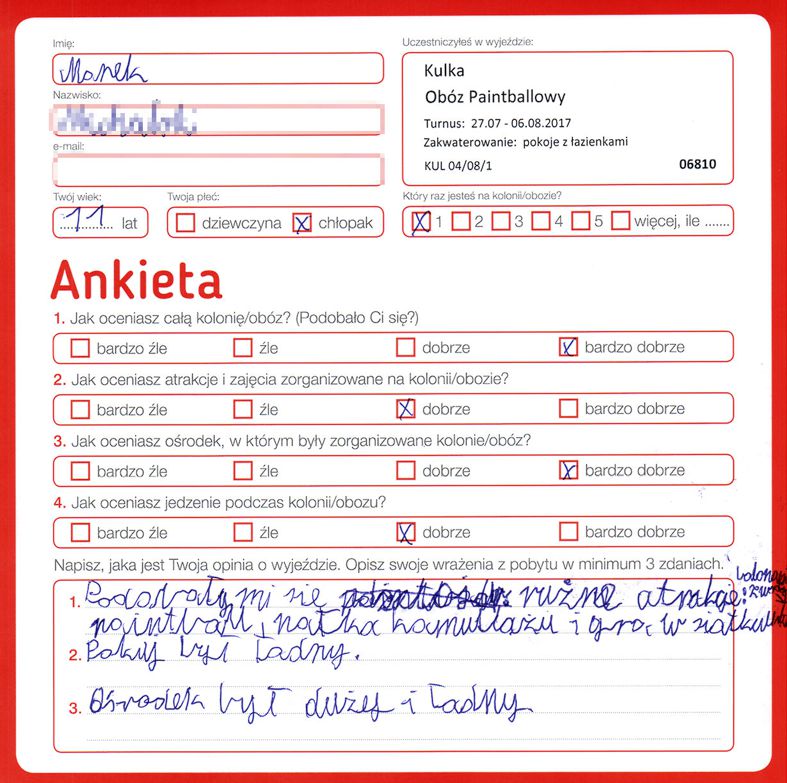 Imię:
Marek
Nazwisko:
e-mail:
Uczestniczyłeś w wyjeździe:
Kulka
Obóz Paintballowy
Turnus: 27.07 - 06.08.2017
Zakwaterowanie: pokoje z łazienkami
KUL 04/08/1 06810
Twój wiek:
11 lat
Twoja płeć:
dziewczyna X chłopak
Który raz jesteś na kolonii/obozie?
X 1 2 3 4 5 więcej, ile .......
Ankieta
1. Jak oceniasz całą kolonię/obóz? (Podobało Ci się?)
bardzo źle źle dobrze X bardzo dobrze
2. Jak oceniasz atrakcje i zajęcia zorganizowane na kolonii/obozie?
bardzo źle źle X dobrze bardzo dobrze
3. Jak oceniasz ośrodek, w którym były zorganizowane kolonie/obóz?
bardzo źle źle dobrze X bardzo dobrze
4. Jak oceniasz jedzenie podczas kolonii/obozu?
bardzo źle źle X dobrze bardzo dobrze
Napisz, jaka jest Twoja opinia o wyjeździe. Opisz swoje wrażenia z pobytu w minimum 3 zdaniach.
1. Podobały mi się rużne atrakcje:
paintball, kamuflażu i gra w siatku
2. Pokuj był ładny.
3. Ośrodek był dużej i ładny